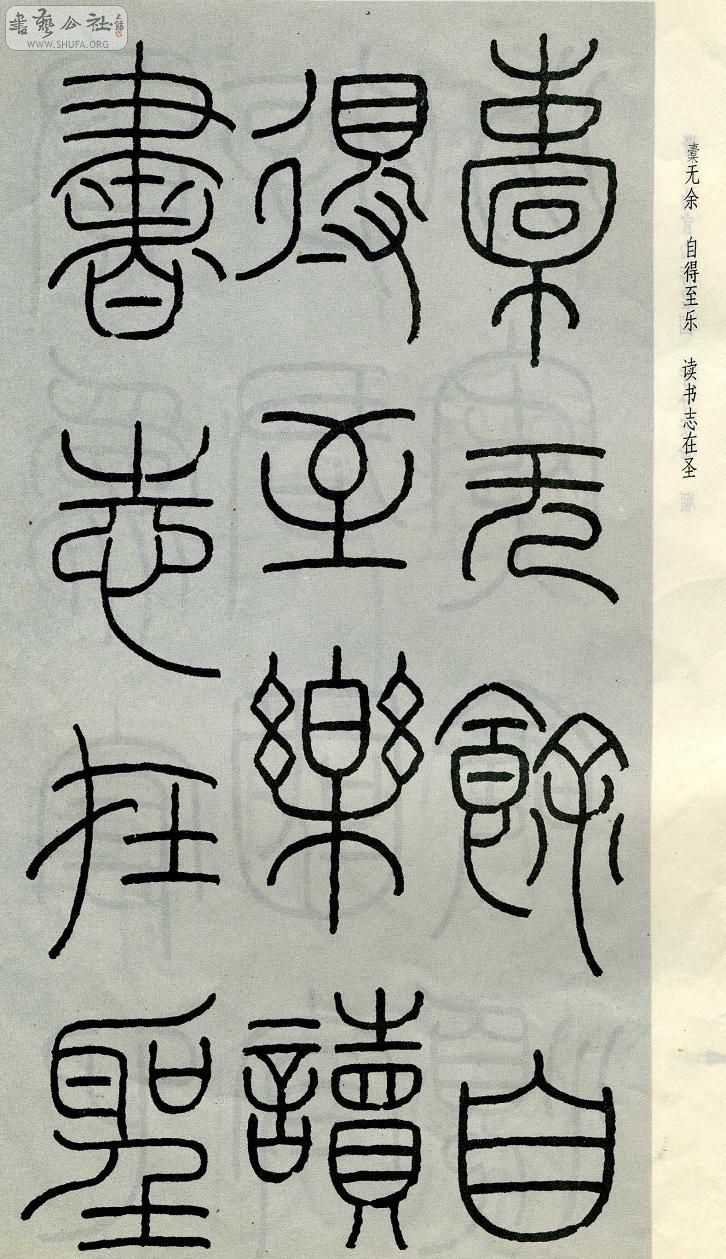 橐无餘自
得至樂讀
書志在聖
橐无余 自得至乐 读书志在圣
書藝公社
WWW.SHUFA.ORG